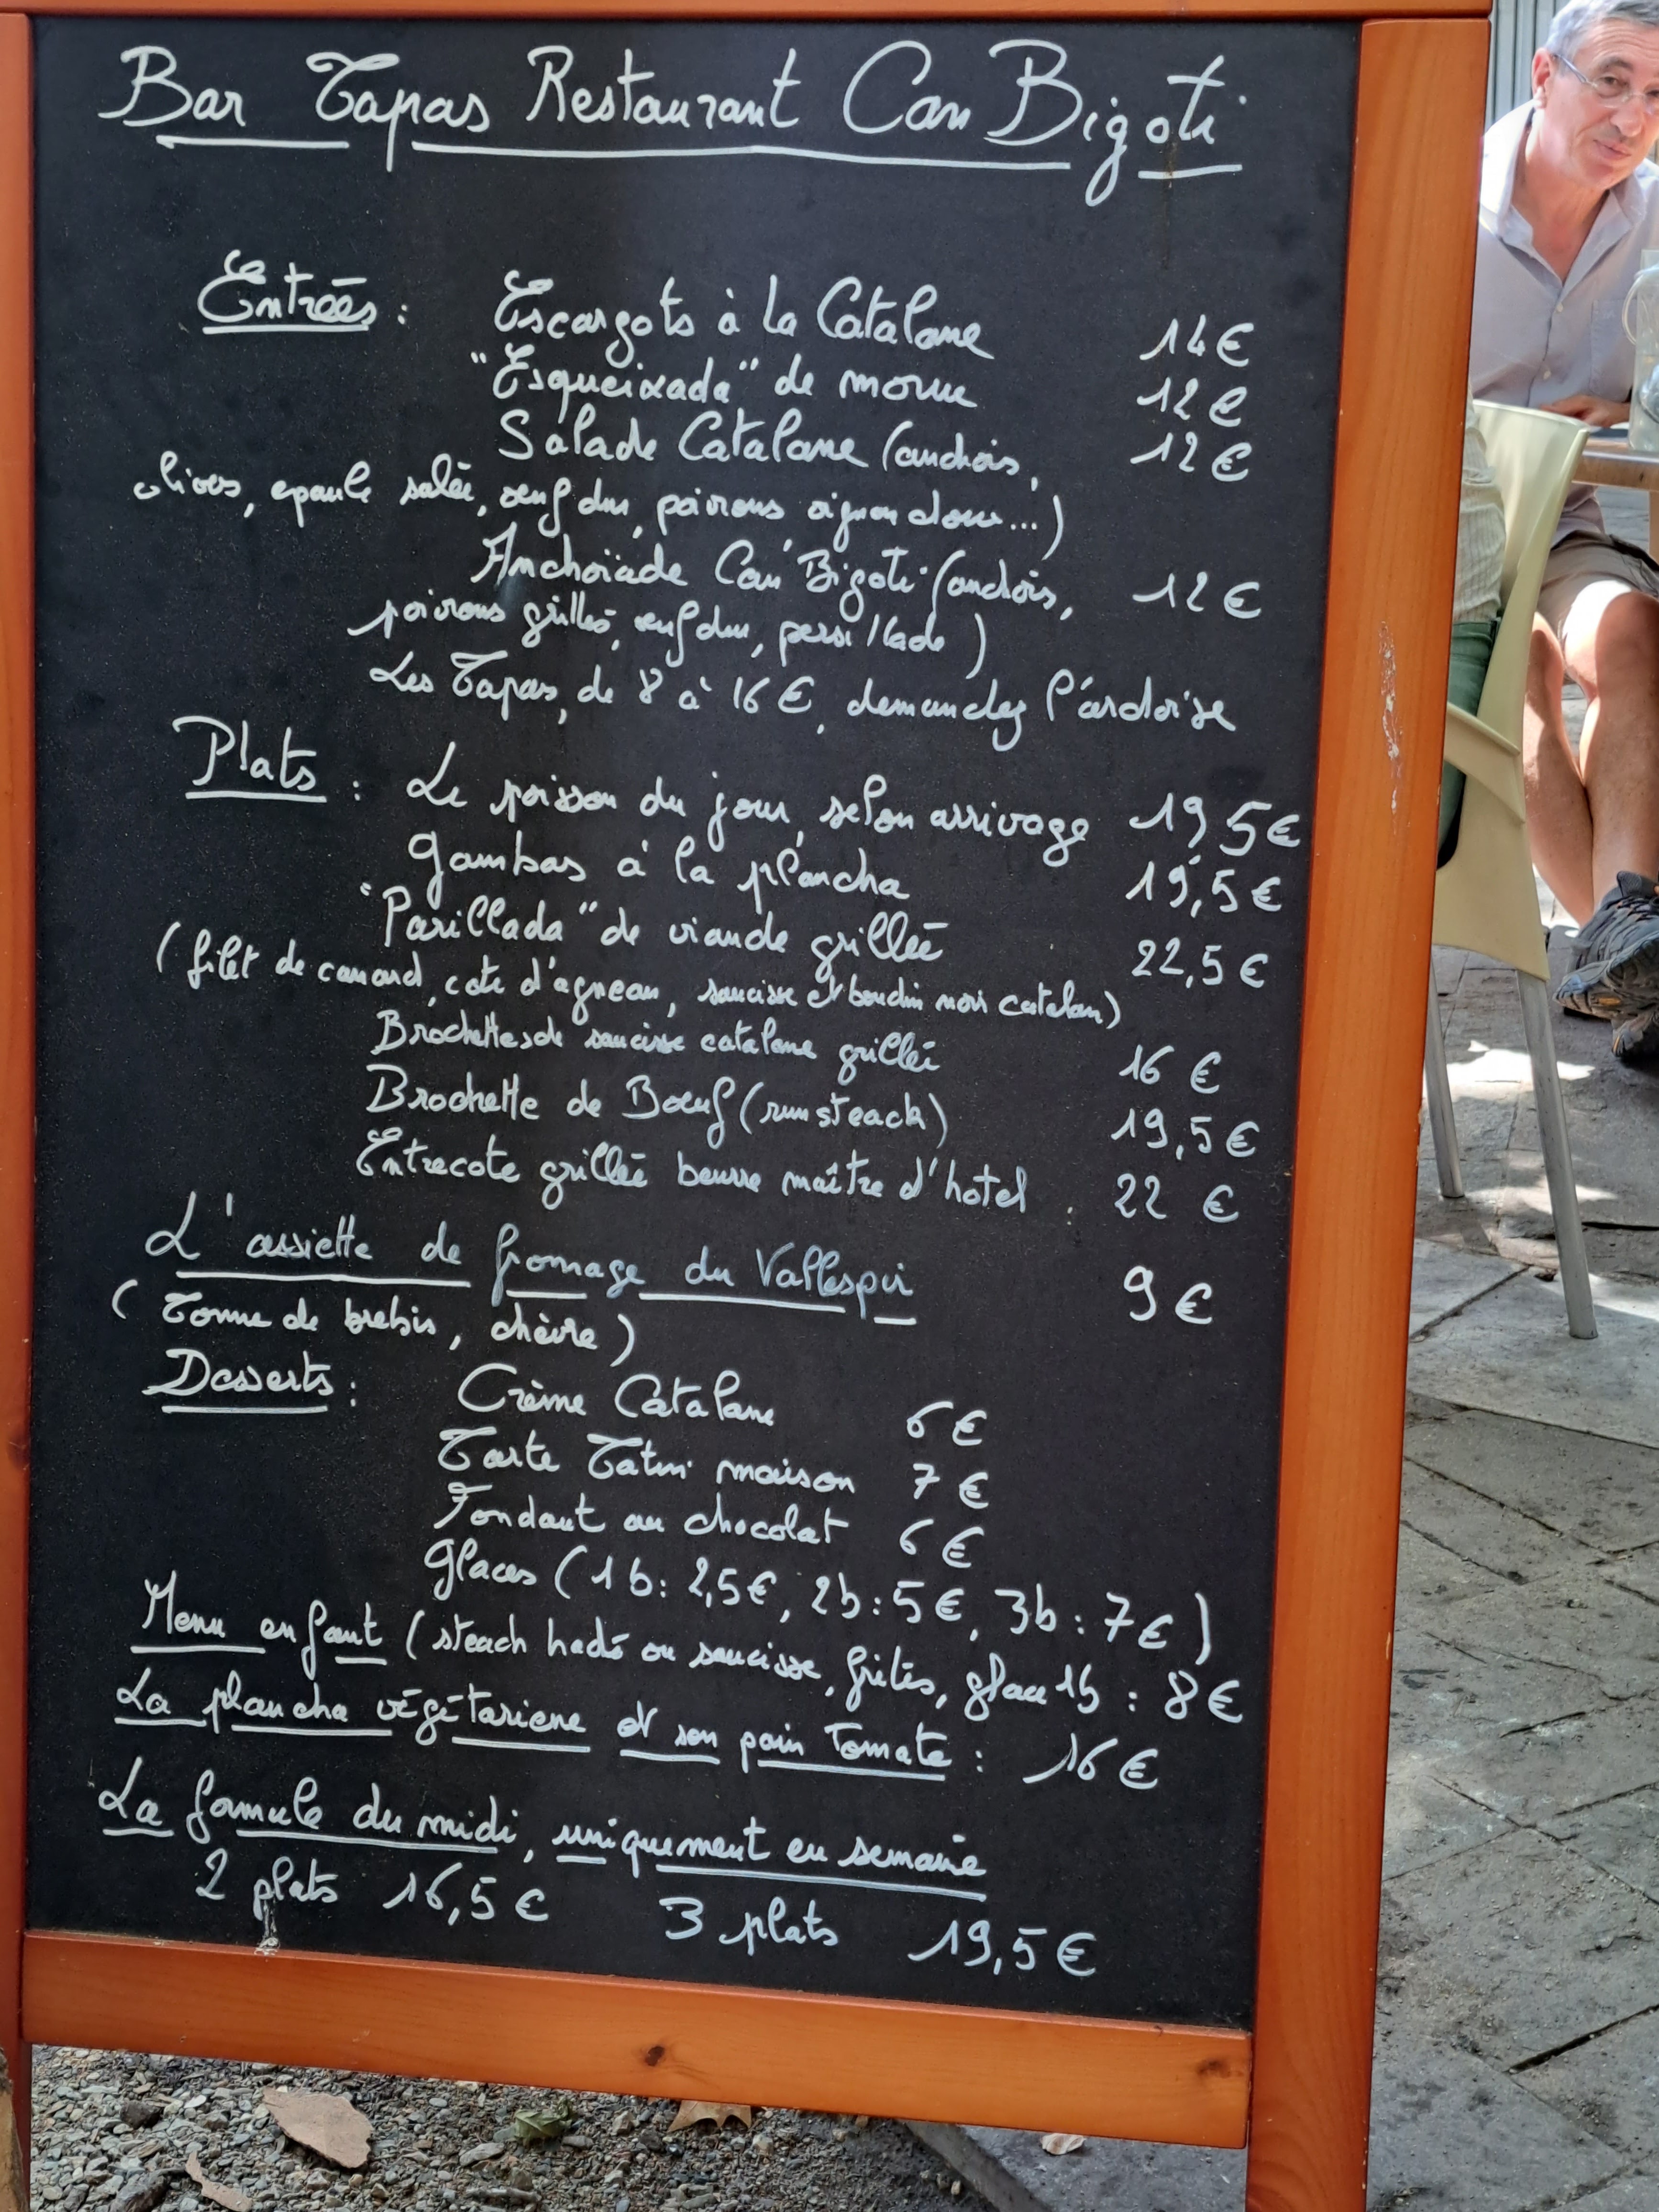 Bar Tapas Restaurant Can Bigoti
Entrées : Escargots à la Catalane 14€
"Esqueixada" de morue 12€
Salade Catalane (anchois, 12€
olives, epaule salée, œuf dur, poivrons oignon doux...)
Anchoïade Can Bigoti (anchois, 12€
poivrons grillés, œuf dur, persillade)
Les Tapas, de 8 à 16€, demandez l'ardoise
Plats : Le poisson du jour, selon arrivage 19,5€
Gambas à la plancha 19,5€
"Parillada" de viande grillée 22,5€
(filet de canard, cote d'agneau, saucisse et boudin noir catalan)
Brochettes de saucisse catalane grillée 16 €
Brochette de Bœuf (rumsteack) 19,5€
Entrecote grillée beurre maître d'hotel. 22 €
L'assiette de fromage du Vallespir 9€
(Tomme de brebis, chèvre)
Desserts : Crème Catalane 6€
Tarte Tatin maison 7€
Fondant au chocolat 6€
Glaces (1b: 2,5€, 2b: 5€, 3b: 7€)
Menu enfant (steach haché ou saucisse, frites, glace 1b : 8€
La plancha végétariene et son pain Tomate : 16€
La formule du midi, uniquement en semaine
2 plats 16,5€ 3 plats 19,5€